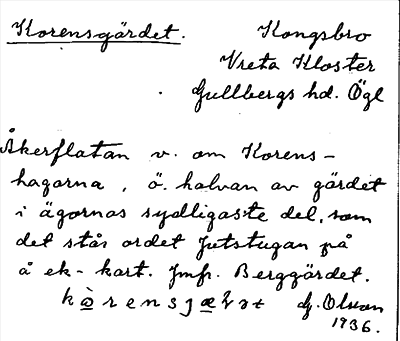 Korensgärdet. Kongsbro
Vreta Kloster
Gullbergs hd. Ögl
Åkerflatan v. om Korens-
hagarna, ö. halvan av gärdet
i ägornas sydligaste del, som
det står ordet Jutstugan på
å ek-kart. Jmfr. Berggärdet.
G. Olsson
1936.